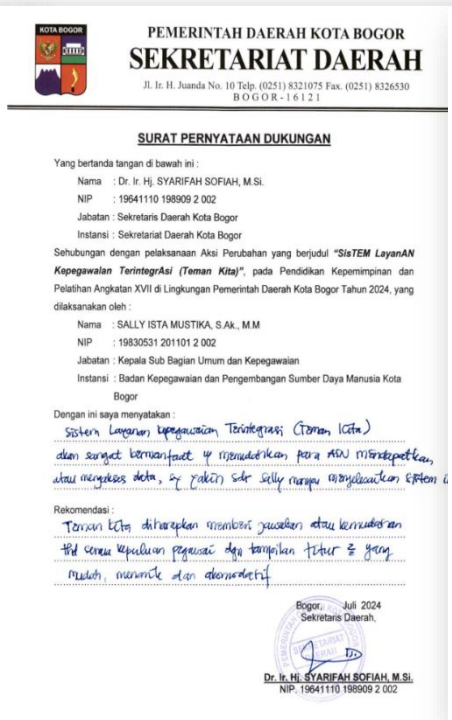 KOTA BOGOR
PEMERINTAH DAERAH KOTA BOGOR
SEKRETARIAT DAERAH
Jl. Ir. H. Juanda No. 10 Telp. (0251) 8321075 Fax. (0251) 8326530
BOGOR-16121
SURAT PERNYATAAN DUKUNGAN
Yang bertanda tangan di bawah ini :
Nama : Dr. Ir. Hj. SYARIFAH SOFIAH, M.Si.
NIP : 19641110 198909 2 002
Jabatan : Sekretaris Daerah Kota Bogor
Instansi : Sekretariat Daerah Kota Bogor
Sehubungan dengan pelaksanaan Aksi Perubahan yang berjudul “SisTEM LayanAN
Kepegawaian TerintegrAsi (Teman Kita)”, pada Pendidikan Kepemimpinan dan
Pelatihan Angkatan XVII di Lingkungan Pemerintah Daerah Kota Bogor Tahun 2024, yang
dilaksanakan oleh :
Nama : SALLY ISTA MUSTIKA, S.Ak., M.M
NIP : 19830531 201101 2 002
Jabatan : Kepala Sub Bagian Umum dan Kepegawaian
Instansi : Badan Kepegawaian dan Pengembangan Sumber Daya Manusia Kota
Bogor
Dengan ini saya menyatakan :
Sistem Layanan Kepegawaian Terintegrasi (Teman Kita)
akan sangat bermanfaat memudahkan para ASN mendapatkan
atau mengakses data, yakin sdr Sally mampu menyelesaikan sistem
Rekomendasi :
Teman Kita diharapkan memberi jawaban atau kemudahan
thd semua keperluan pegawai dgn tampilan fitur yang
mudah, menarik dan akomodatif
Bogor, Juli 2024
Sekretaris Daerah,
SEKRETARIAT
DAERAH
Dr. Ir. Hj. SYARIFAH SOFIAH, M.Si.
NIP. 19641110 198909 2 002